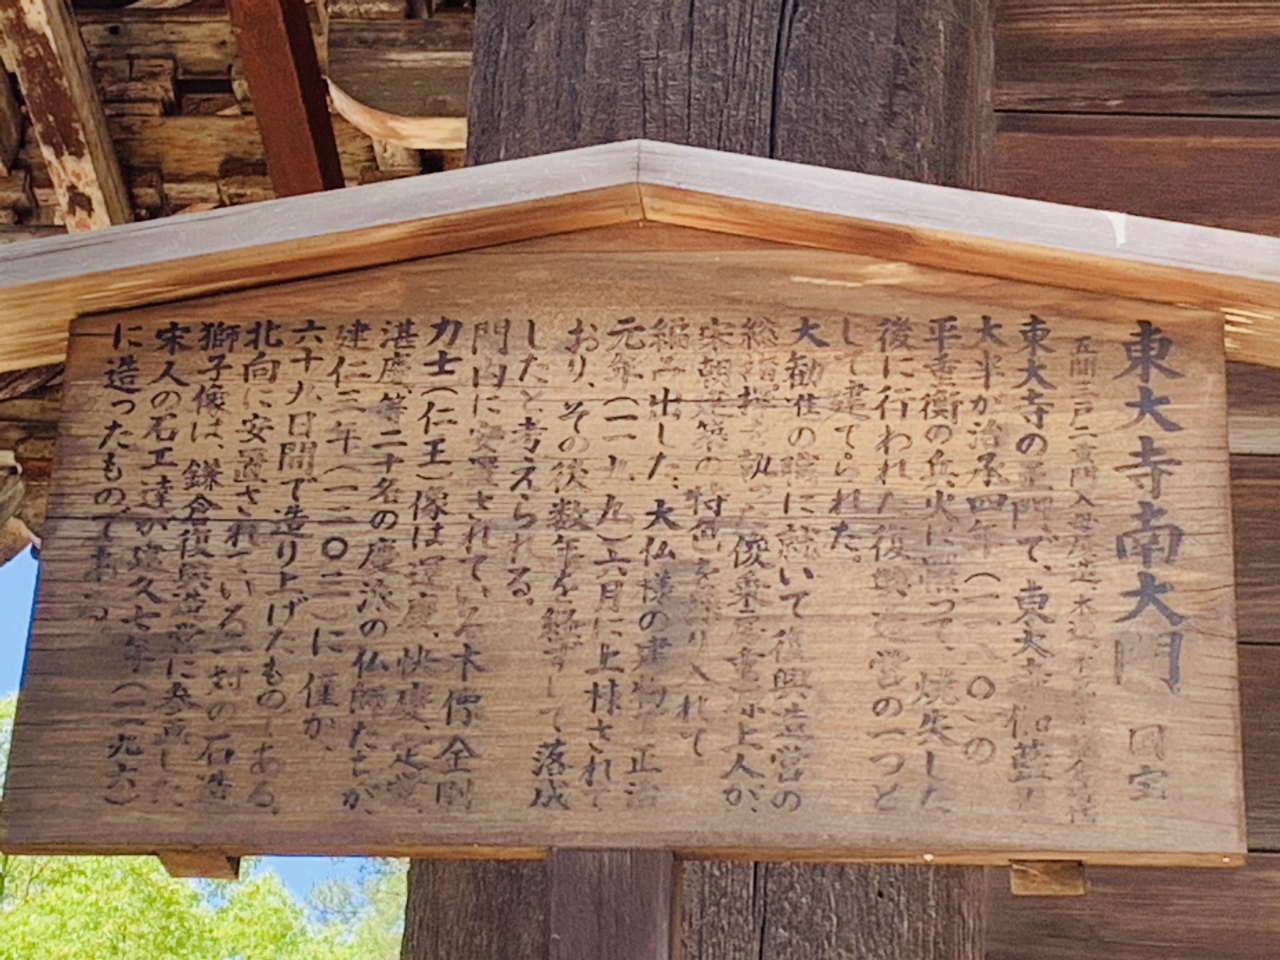 東大寺南大門 国宝
五間三戸二重門入母屋造本瓦
東大寺の正門で、東大寺伽藍の
大半が治承四年（一一八〇）の
平重衡の兵火に罹って、焼失した
後に行われた復興造営の一つと
して建てられた。
大勧進の職に就いて復興造営の
総指揮を執った俊乗房重源上人が、
宋朝建築の特色を採り入れて
編み出した、大仏様の建物で正治
元年（一一九九）六月に上棟されて
おり、その後数年を経ずして落成
したと考えられる。
門内に安置されている木像金剛
力士（仁王）像は運慶、快慶、定覚、
湛慶等二十名の慶派の仏師たちが、
建仁三年（一二〇三）に僅か、
六十九日間で造り上げたもの。
北向に安置されている一対の石造
獅子像は、鎌倉復興造営に参画した
宋人の石工達が建久七年（一一九六）
に造ったものである。